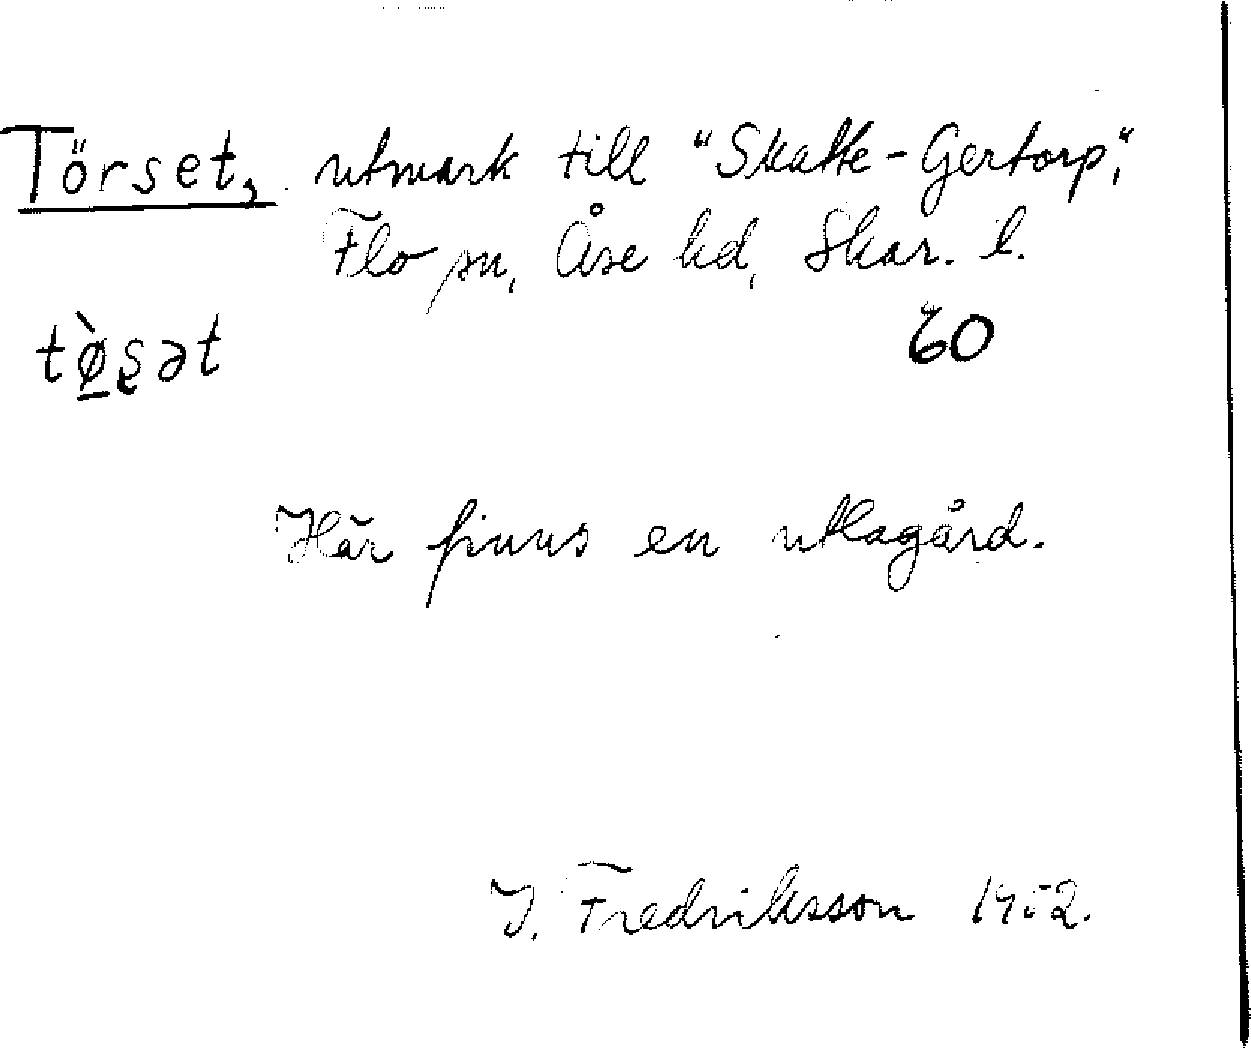 Törset, utmark till "Skatte-Gertorp",
Flo sn, Åse hd, Skar. l.
tø̱̀ʂət 60
Här finns en utlagård.
I. Fredriksson 1952.